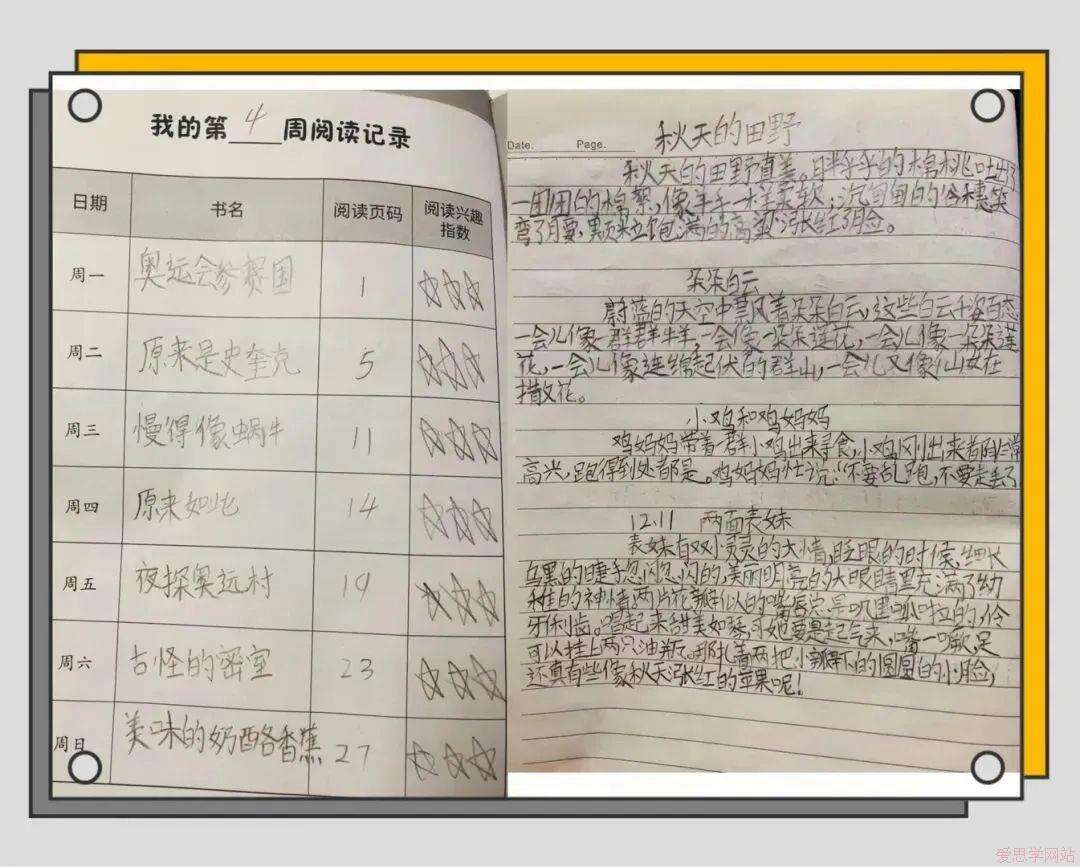 我的第4周阅读记录
日期 书名 阅读页码 阅读兴趣指数
周一 奥运会参赛国 1 ☆☆☆
周二 原来是史奎克 5 ☆☆☆
周三 慢得像蜗牛 11 ☆☆☆
周四 原来如此 14 ☆☆☆
周五 夜探奥运村 19 ☆☆☆
周六 古怪的密室 23 ☆☆☆
周日 美味的奶酪香蕉 27 ☆☆☆
Date. Page.
秋天的田野
秋天的田野真美。胖乎乎的棉桃吐出了
一团团的棉絮,像羊毛一样柔软;沉甸甸的谷穗笑
弯了腰,颗粒饱满的高粱涨红了脸。
朵朵白云
蔚蓝的天空中飘着朵朵白云,这些白云千姿百态
一会儿像一群群牛羊,一会像一朵朵莲花,一会儿像一朵朵莲
花,一会儿像连绵起伏的群山,一会儿又像仙女在
散花。
小鸡和鸡妈妈
鸡妈妈带着一群小鸡出来寻食,小鸡刚出来都非常
高兴,跑得到处都是。鸡妈妈忙说:“不要乱跑,不要走丢了
12.11 两面表妹
表妹有双水灵灵的大眼睛,眨眼的时候,细长
乌黑的睫毛忽闪忽闪的,美丽明亮的大眼睛里充满了幼
稚的神情。两片花瓣似的嘴唇总是叽里呱啦的,伶
牙利齿。唱起来甜美如琴,可她要是起气来,嘴一噘,足
可以挂上两只油瓶。那扎着两把小辫下的圆圆的小脸,
还真有些像秋天涨红的苹果呢!
爱思学网站